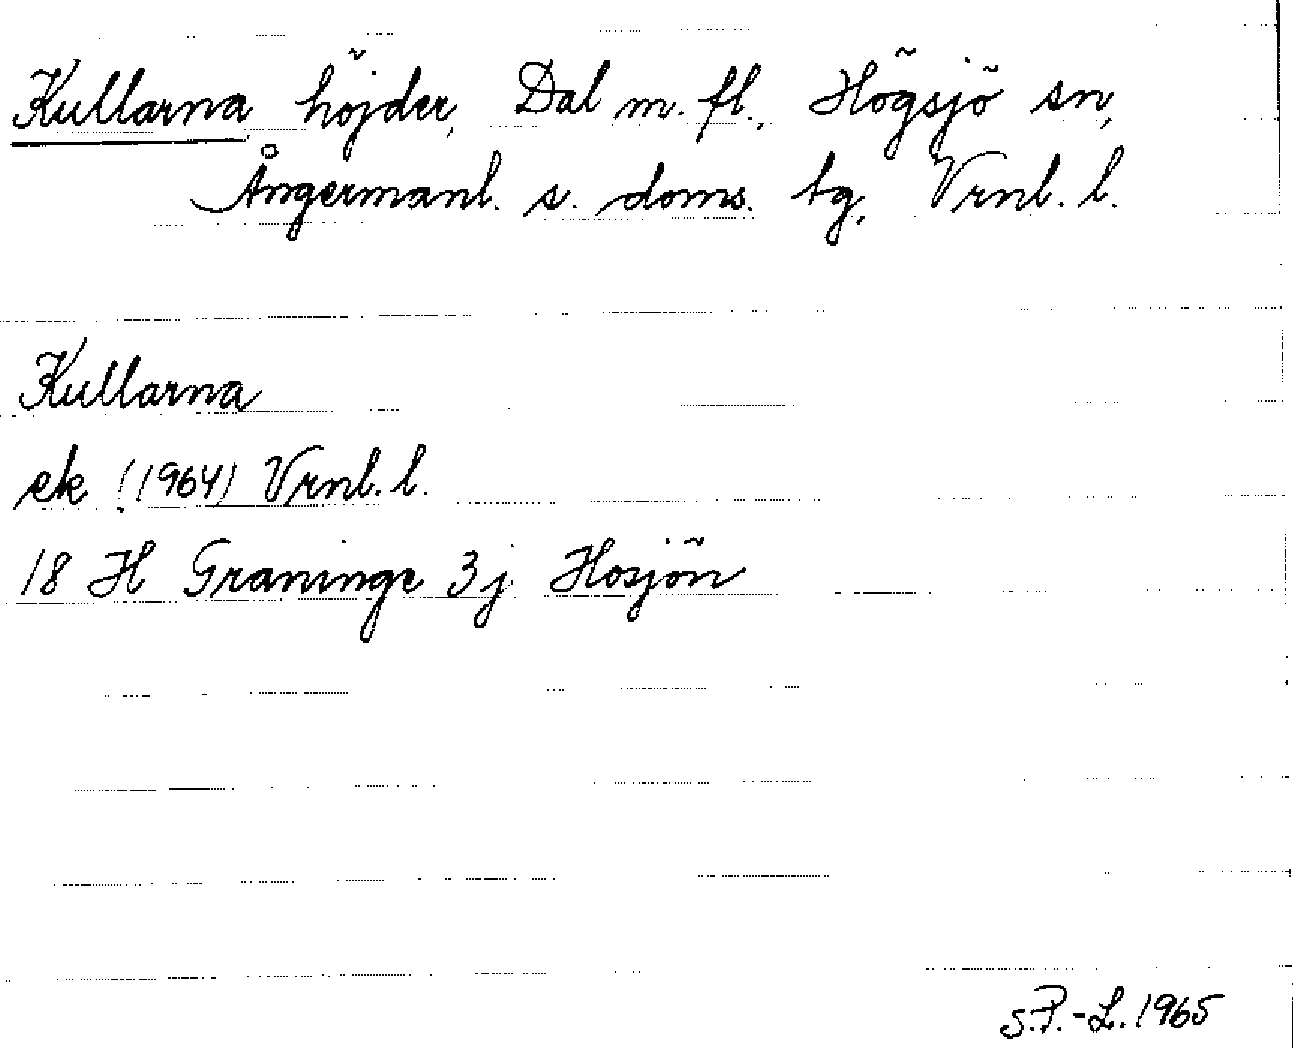 Kullarna höjder, Dal m. fl., Högsjö sn,
Ångermanl. s. doms. tg, Vrnl. l.
Kullarna
ek (1964) Vrnl. l.
18 H Graninge 3j Hosjön
S.P.-L. 1965